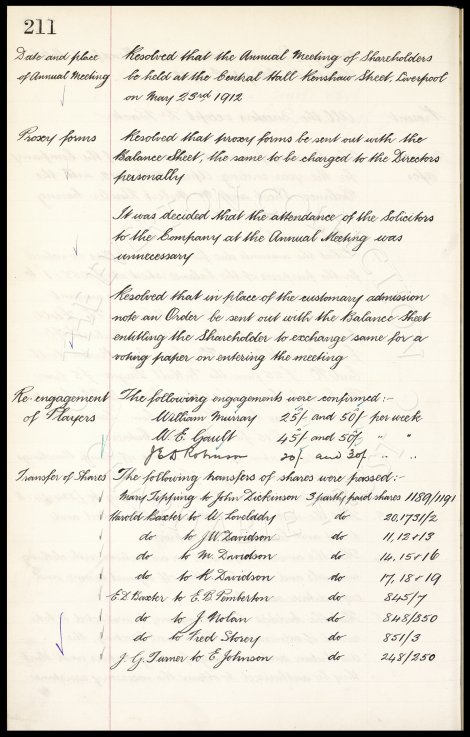 211
Date and place of Annual Meeting
Resolved that the Annual Meeting of Shareholders
be held at the Central Hall Renshaw Street, Liverpool
on May 23rd 1912
Proxy forms
Resolved that proxy forms be sent out with the
Balance Sheet, the same to be charged to the Directors
personally
It was decided that the attendance of the Solicitors
to the Company at the Annual Meeting was
unnecessary
Resolved that in place of the customary admission
note an Order be sent out with the Balance Sheet
entitling the Shareholder to exchange same for a
voting paper on entering the meeting
Re-engagement of Players
The following engagements were confirmed:-
William Murray 25/- and 50/- per week
W. E. Gault 45/- and 50/- " "
Robinson 20/- and 30/- " "
Transfer of Shares
The following transfers of shares were passed:-
Mary Tipping to John Dickinson 3 partly paid shares 1189/1191
Harold Baxter to W. Lovelady do 20,1731/2
do to J W. Davidson do 11, 12 & 13
do to M. Davidson do 14, 15 & 16
do to R. Davidson do 17, 18 & 19
E.D. Baxter to E. B. Pemberton do 845/7
do to J. Nolan do 848/850
do to Fred Storey do 851/3
J. G. Turner to E. Johnson do 248/250